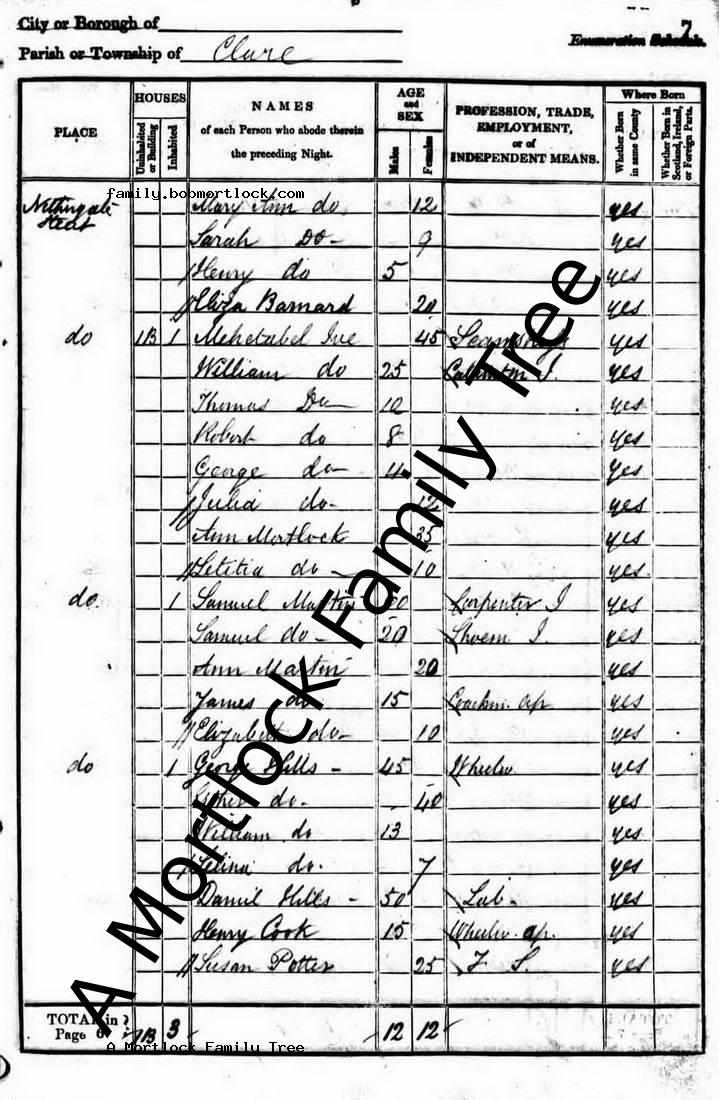 City or Borough of
7
Parish or Township of Clare
Enumeration Schedule.
PLACE
HOUSES
Uninhabited or Building
Inhabited
NAMES
of each Person who abode therein
the preceding Night.
AGE
and
SEX
Males
Females
PROFESSION, TRADE,
EMPLOYMENT,
or of
INDEPENDENT MEANS.
Where Born
Whether Born in same County
Whether Born in Scotland, Ireland, or Foreign Parts.
family.bobmortlock.com
Mary Ann do 12 yes
Sarah Do 9 yes
Henry do 5 yes
Eliza Barnard 20 yes
do 1B 1 Mehetabel 45 yes
William do 25 yes
Thomas Do 10 yes
Robert do 8 yes
George do yes
Julia do 12 yes
Ann Mortlock yes
Letitia do 10 yes
do 1 Samuel Martin Carpenter J yes
Samuel do 20 Shoem J. yes
Ann Martin 20 yes
James do 15 ap yes
Elizabeth do 10 yes
do 1 George Hills 45 Wheeler yes
do 40 yes
William do 13 yes
Selina do 7 yes
Daniel Hills 50 Lab yes
Henry Cook 15 Wheeler ap. yes
Susan Potter 25 F. S. yes
TOTAL in
Page 6 1B 3 12 12
A Mortlock Family Tree
A Mortlock Family Tree